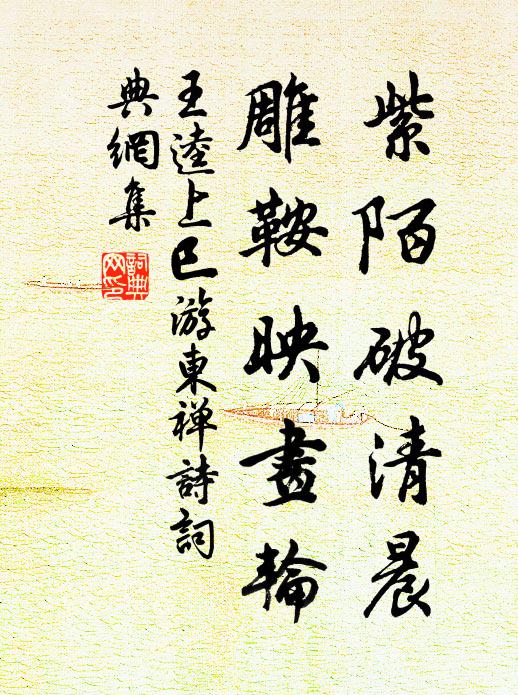 紫陌破清晨
雕鞍映畫輪
王逵上巳游東禅詩詞
典網集
詞典
网印